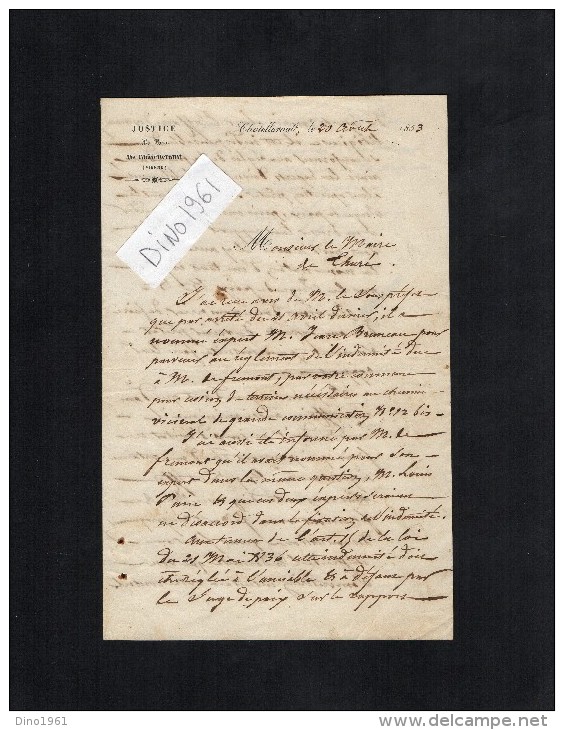 JUSTICE
de Paix
de Châtellerault
(VIENNE)
Chatellerault, le 20 1853
DINO1961
Monsieur le Maire
de Thuré.
J'ai reçu avis de M. le Souspréfet
que par arrêté du 21 avril dernier, il a
nommé expert M. Bruneau pour
parvenir au règlement de l'indemnité due
à M. de fremont, par votre commune
pour cession de terrains nécessaires au chemin
vicinal de grande communication N° 12 bis
J'ai aussi été informé par M. de
fremont qu'il avait nommé pour son
expert dans la même question, M. Louis
et que ces deux experts seraient
en désaccord dans la fixation de l'indemnité.
Aux termes de l'art. 15 de la loi
du 21 Mai 1836 cette indemnité doit
être réglée à l'amiable et à défaut par
le Juge de paix sur le rapport
Dino1961
delcampe.net